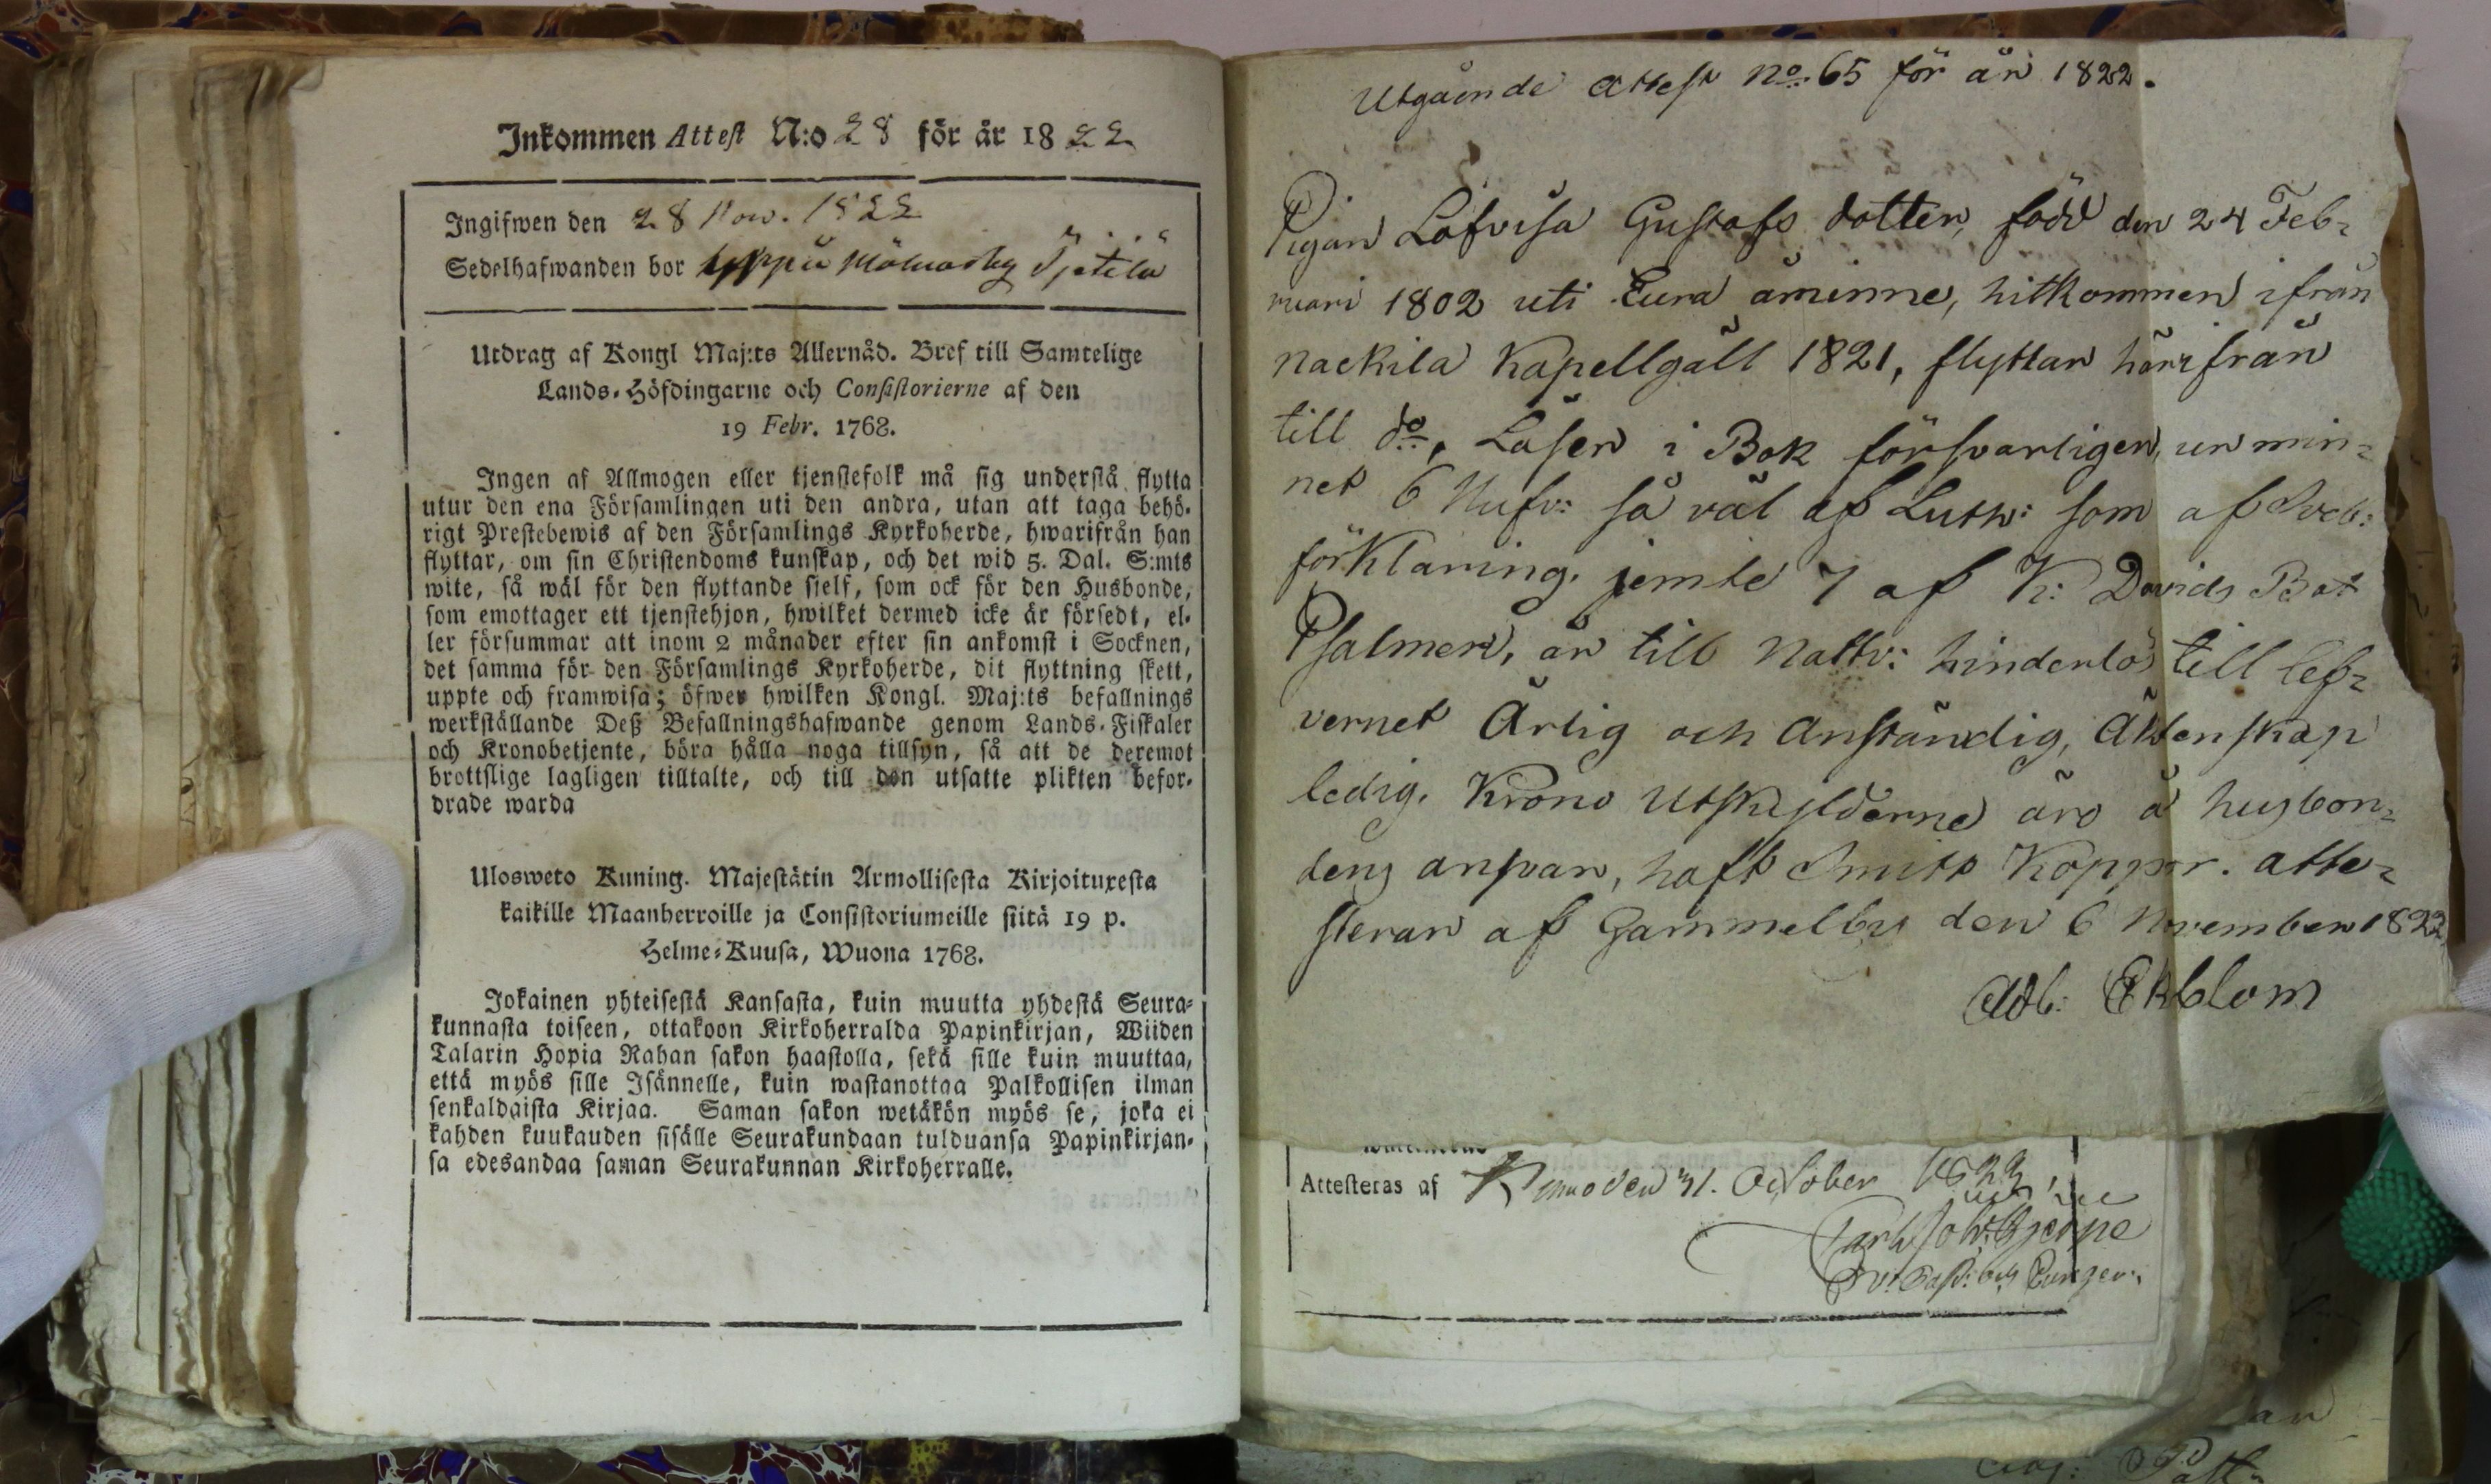 Inkommen Attest N:o 28 för år 1822
Ingifwen den 28 Nov. 1822
Sedelhafwanden bor
Utdrag af Kongl Maj:ts Allernåd. Bref till Samtelige
Lands-Höfdingarne och Consistorierne af den
19 Febr. 1768.
Ingen af Allmogen eller tjenstefolk må sig understå flytta
utur den ena Församlingen uti den andra, utan att taga behö-
rigt Prestebewis af den Församlings Kyrkoherde, hwarifrån han
flyttar, om sin Christendoms kunskap, och det wid 5. Dal. S:mts
wite, så wäl för den flyttande sielf, som ock för den Husbonde,
som emottager ett tjenstehjon, hwilket dermed icke är försedt, el-
ler försummar att inom 2 månader efter sin ankomst i Socknen,
det samma för den Församlings Kyrkoherde, dit flyttning skett,
uppte och framwisa; öfwer hwilken Kongl. Maj:ts befallnings
werkställande Deß Befallningshafwande genom Lands-Fiskaler
och Kronobetjente, böra hålla noga tillsyn, så att de deremot
brottslige lagligen tilltalte, och till den utsatte plikten befor-
drade warda
Ulosweto Kuning. Majestätin Armollisesta Kirjoituxesta
kaikille Maanherroille ja Consistoriumeille siitä 19 p.
Helme-Kuusa, Wuona 1768.
Jokainen yhteisestä Kansasta, kuin muutta yhdestä Seura-
kunnasta toiseen, ottakoon Kirkoherralda Papinkirjan, Wiiden
Talarin Hopia Rahan sakon haastolla, sekä sille kuin muuttaa,
että myös sille Isännelle, kuin wastanottaa Palkollisen ilman
senkaldaista Kirjaa. Saman sakon wetäkön myös se, joka ei
kahden kuukauden sisälle Seurakundaan tulduansa Papinkirjan-
sa edesandaa saman Seurakunnan Kirkoherralle.
Utgående Attest No. 65 för år 1822.
Pigan Lofvisa Gustafs dotter, född den 24 Feb-
ruari 1802 uti Eura åminne, hitkommen ifrån
Nackila Kapellgäll 1821, flyttar härifrån
till do, Läser i Bok försvarligen, ur min-
net 6 Hufv: så väl af Luth: som af Sveb:
förklaring. jemte 7 af K: Davids Bot
Psalmer, är till Nattv: hinderlös till lef-
vernet Ärlig och Anständig, Äktenskap
ledig. Krono Utskylderne äro å husbon-
dens ansvar, haft Smitt Koppor. atte-
sterar af Gammelby den 6 November 1822
Adl: Ekblom
Attesteras af Kumo den 31. October 1822,